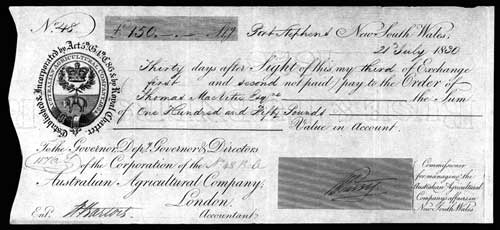 No. 48
£150. Stg
Port Stephens New South Wales,
21st July 1830
Thirty days after Sight of this my third of Exchange
first and second not paid, pay to the Order of
Thomas Macvitie Esqre the Sum
of One Hundred and Fifty Pounds
Value in Account.
To the Governor, Depy. Governor & Directors
of the Corporation of the
Australian Agricultural Company,
London.
Entd.
Accountant
Established & Incorporated by Act 5th G.4th C.86 & by Royal Charter
AUSTRALIAN AGRICULTURAL COMPANY
Commissioner
for managing the
Australian Agricultural
Company's affairs in
New South Wales